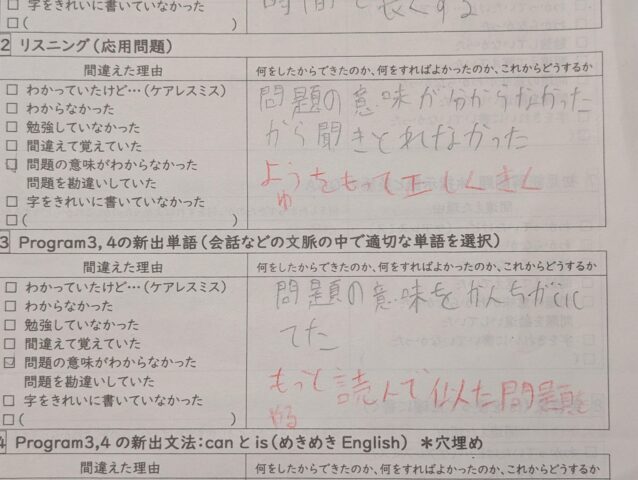 字をきれいに書いていなかった
( )
時間 長くする
2 リスニング(応用問題)
間違えた理由 何をしたからできたのか、何をすればよかったのか、これからどうするか
□ わかっていたけど…(ケアレスミス)
□ わからなかった
□ 勉強していなかった
□ 間違えて覚えていた
☑ 問題の意味がわからなかった
問題を勘違いしていた
□ 字をきれいに書いていなかった
□( )
問題の意味が分からなかった
から聞きとれなかった
ようゆうをもって正しくきく
3 Program3,4の新出単語(会話などの文脈の中で適切な単語を選択)
間違えた理由 何をしたからできたのか、何をすればよかったのか、これからどうするか
□ わかっていたけど…(ケアレスミス)
□ わからなかった
□ 勉強していなかった
□ 間違えて覚えていた
☑ 問題の意味がわからなかった
問題を勘違いしていた
□ 字をきれいに書いていなかった
□( )
問題の意味をかんちがいし
てた
もっと読んで似た問題を
やる
4 Program3,4の新出文法:canとis(めきめきEnglish) *穴埋め
間違えた理由 何をしたからできたのか、何をすればよかったのか、これからどうするか